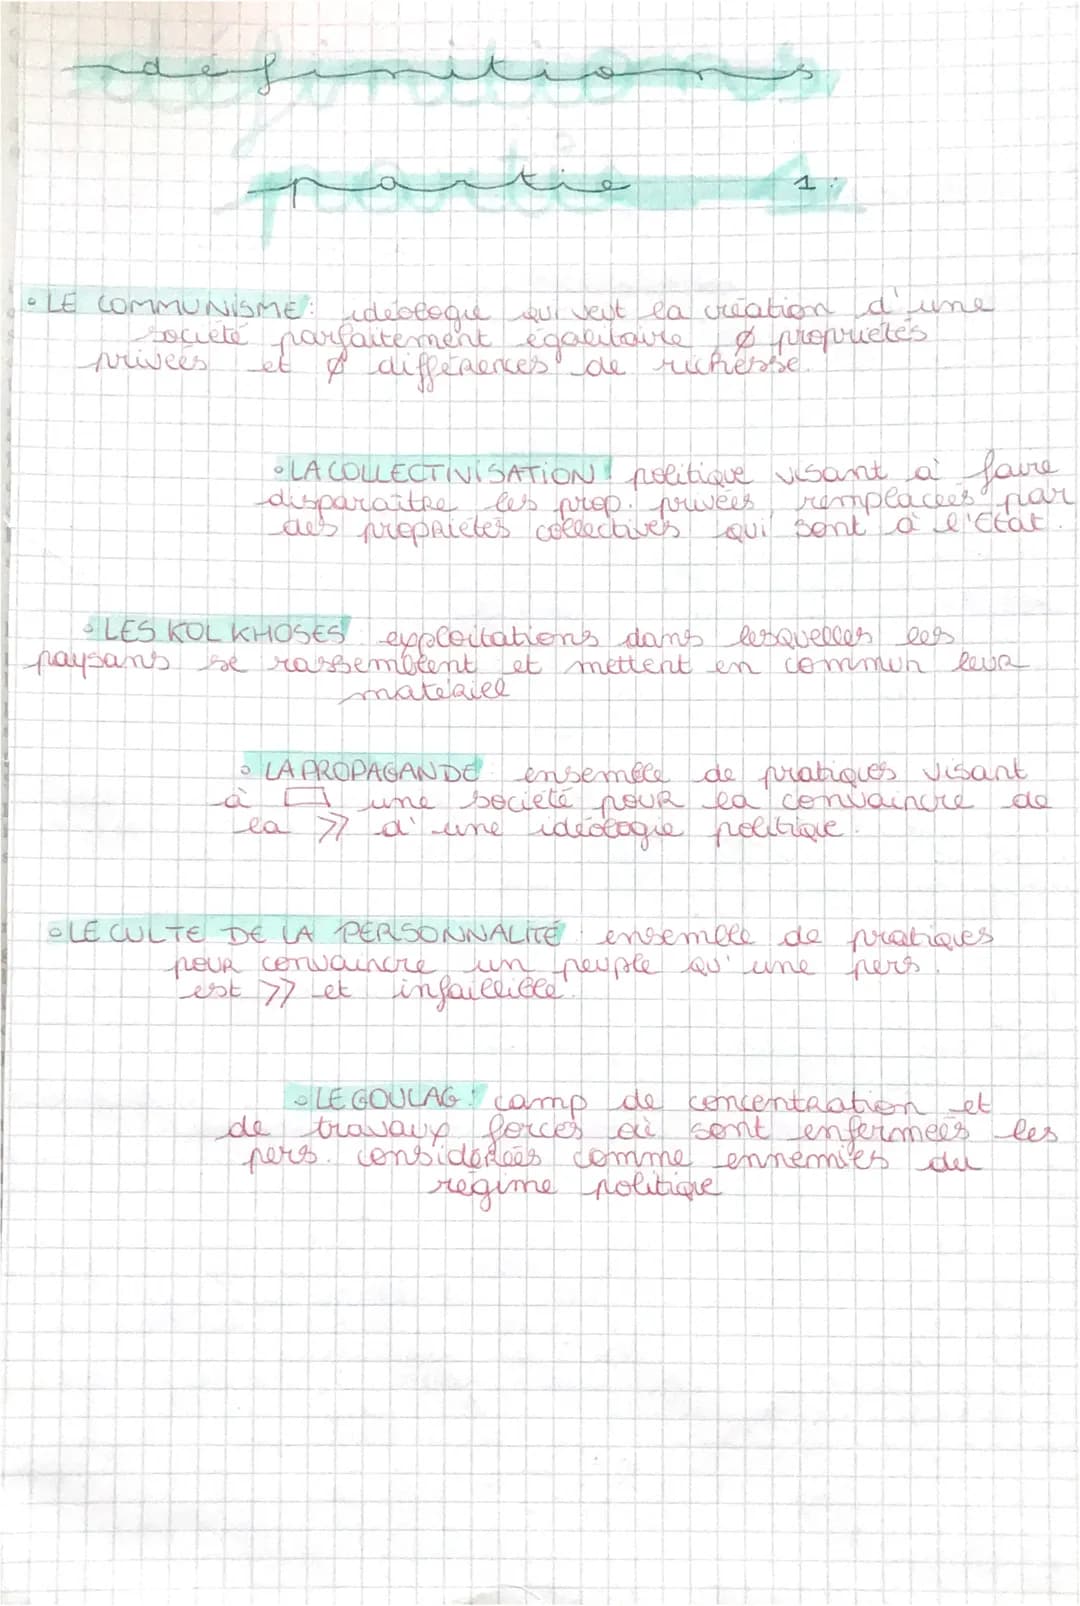 définitions
partie 1:
• LE COMMUNISME: idéologie qui veut la création d'une
société parfaitement égalitaire, Ø propriétés
privées et Ø différences de richesse.
• LA COLLECTIVISATION: politique visant à faire
disparaître les prop. privées, remplacées par
des propriétés collectives qui sont à l'Etat.
• LES KOLKHOSES: exploitations dans lesquelles les
paysans se rassemblent et mettent en commun leur
matériel
• LA PROPAGANDE: ensemble de pratiques visant
à une société pour la convaincre de
la >> d'une idéologie politique.
• LE CULTE DE LA PERSONNALITÉ: ensemble de pratiques
pour convaincre un peuple qu'une pers.
est >> et infaillible.
• LE GOULAG: camp de concentration et
de travaux forcés où sont enfermées les
pers. considérées comme ennemies du
régime politique